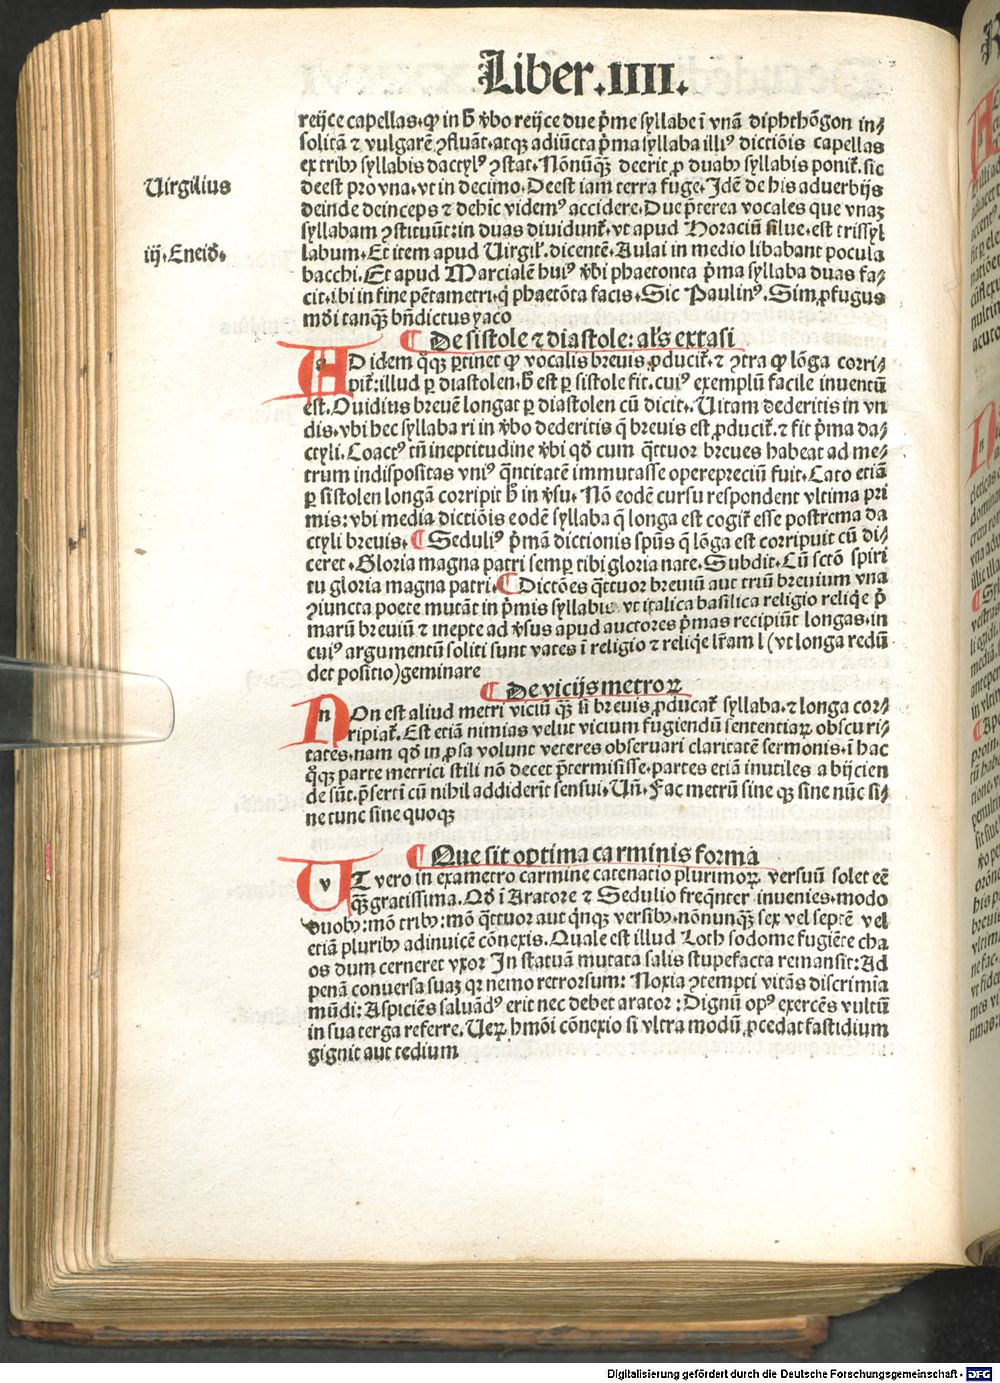 Liber.IIII.
reijce capellas. ꝙ in h̄ v̾bo reijce due p̄me syllabe ī vnā diphthōgon in⸗
solitā ⁊ vulgarē ꝯfluāt. atqꝫ adiūcta p̄ma syllaba illiꝰ dictiōis capellas
ex tribꝰ syllabis dactylꝰ ꝯstat. Nōnūqꝫ̄ decrit ꝓ duabꝰ syllabis ponit᷑. sic
Uirgilius
deest pro vna. vt in decimo. Deest iam terra fuge. Idē de his aduerbijs
deinde deinceps ⁊ dehīc videmꝰ accidere. Due p̄terea vocales que vnaꝫ
syllabam ꝯstituūt: in duas diuidunt᷑. vt apud Horaciū silue. est trissyl
iij. Eneid̾.
labum. Et item apud Uirgil᷑. dicentē. Aulai in medio libabant pocula
bacchi. Et apud Marcialē huiꝰ v̾bi phaetonta p̄ma syllaba duas fa⸗
cit. ibi in fine pētametri. q̇ phaetōta facis. Sic Paulinꝰ. Sim ꝓfugus
mūdi tanqꝫ̄ bn̄dictus yaco
¶ De sistole ⁊ diastole: al̓s extasi
AD idem q̊qꝫ ꝑtinet ꝙ vocalis breuis ꝓducit᷑. ⁊ ꝯtra ꝙ lōga corri⸗
pit᷑: illud ꝑ diastolen. h̄ est ꝑ sistole fit. cuiꝰ exemplū facile inuentū
est. Ouidius breuē longat ꝑ diastolen cū dicit. Uitam dederitis in vn
dis. vbi hec syllaba ri in v̾bo dederitis q̄ breuis est ꝓducit᷑. ⁊ fit p̄ma da⸗
ctyli. Coactꝰ tn̄ ineptitudine v̾bi qd̾ cum q̄ttuor breues habeat ad me⸗
trum indispositas vniꝰ q̄ntitatē immutasse operepreciū fuit. Cato etiā
ꝑ sistolen longā corripit h̄ in v̾su. Nō eodē cursu respondent vltima pri
mis: vbi media dictiōis eodē syllaba q̄ longa est cogit᷑ esse postrema da
ctyli breuis. ¶ Seduliꝰ p̄mā dictionis spūs q̄ lōga est corripuit cū di⸗
ceret. Gloria magna patri semꝑ tibi gloria nate. Subdit. Cū sctō spiri
tu gloria magna patri. ¶ Dictōes q̄ttuor breuiū aut triū breuium vna
ꝯiuncta poete mutāt in p̄mis syllabis. vt italica basilica religio reliqe p̄
marū breuiū ⁊ inepte ad v̾sus apud auctores p̄mas recipiūt longas. in
cuiꝰ argumentū soliti sunt vates ī religio ⁊ reliqe lr̄am l (vt longa redū
det positio) geminare
¶ De vicijs metroꝝ
NOn est aliud metri viciū qꝫ̄ si breuis ꝓducat᷑ syllaba. ⁊ longa cor⸗
ripiat᷑. Est etiā nimias velut vicium fugiendū sententiaꝝ obscuri⸗
tates. nam qd̾ in ꝓsa volunt veteres obseruari claritatē sermonis. ī hac
q̊qꝫ parte metrici stili nō decet p̄termisisse. partes etiā inutiles abijcien
de sūt. p̄sertī cū nihil addiderit sensui. Un̄. Fac metrū sine qꝫ sine nūc si⸗
ne tunc sine quoqꝫ
¶ Que sit optima carminis forma
UT vero in exametro carmine catenatio plurimoꝝ versuū solet eē
qꝫ̄ gratissima. Qd̾ ī Aratore ⁊ Sedulio freq̄nter inuenies. modo
duobꝰ: mō tribꝰ: mō q̄ttuor aut q̇nqꝫ versibꝰ. nōnunqꝫ̄ sex vel septē vel
etiā pluribꝰ adinuicē cōnexis. Quale est illud Loth sodome fugiēte cha
os dum cerneret vxor In statuā mutata salis stupefacta remansit: Ad
penā conuersa suaꝫ qꝛ nemo retrorsum: Noxia ꝯtempti vitās discrimīa
mūdi: Aspiciēs saluādꝰ erit nec debet arator: Dignū opꝰ exercēs vultū
in sua terga referre. Ueꝝ h̄mōi cōnexio si vltra modū ꝓcedat fastidium
gignit aut tedium
Digitalisierung gefördert durch die Deutsche Forschungsgemeinschaft - DFG